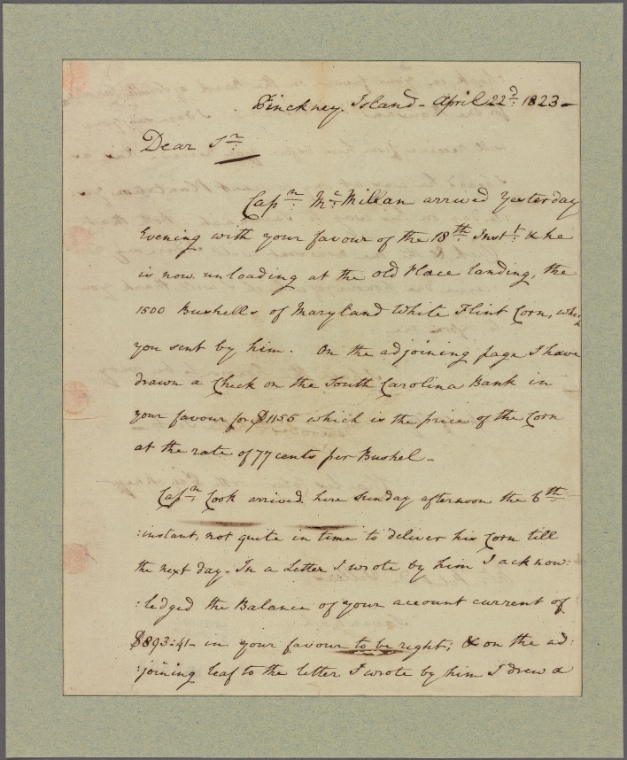 Pinckney Island - April 22d. 1823 -
Dear Sr.
Capn. Mc.Millan arrived yesterday
Evening with your favour of the 18th. Inst. & he
is now unloading at the old Place landing, the
1500 Bushells of Maryland White Flint Corn,
you sent by him. On the adjoining page I have
drawn a Check on the South Carolina Bank in
your favour for $1155 which is the price of the Corn
at the rate of 77 cents per Bushel -
Capn. Cook arrived here Sunday afternoon the 6th.
:instant, not quite in time to deliver his Corn till
the next day - In a Letter I wrote by him I acknow:
:ledged the Balance of your account current of
$893:41- in your favour to be right; & on the ad:
:joining leaf to the letter I wrote by him I drew a